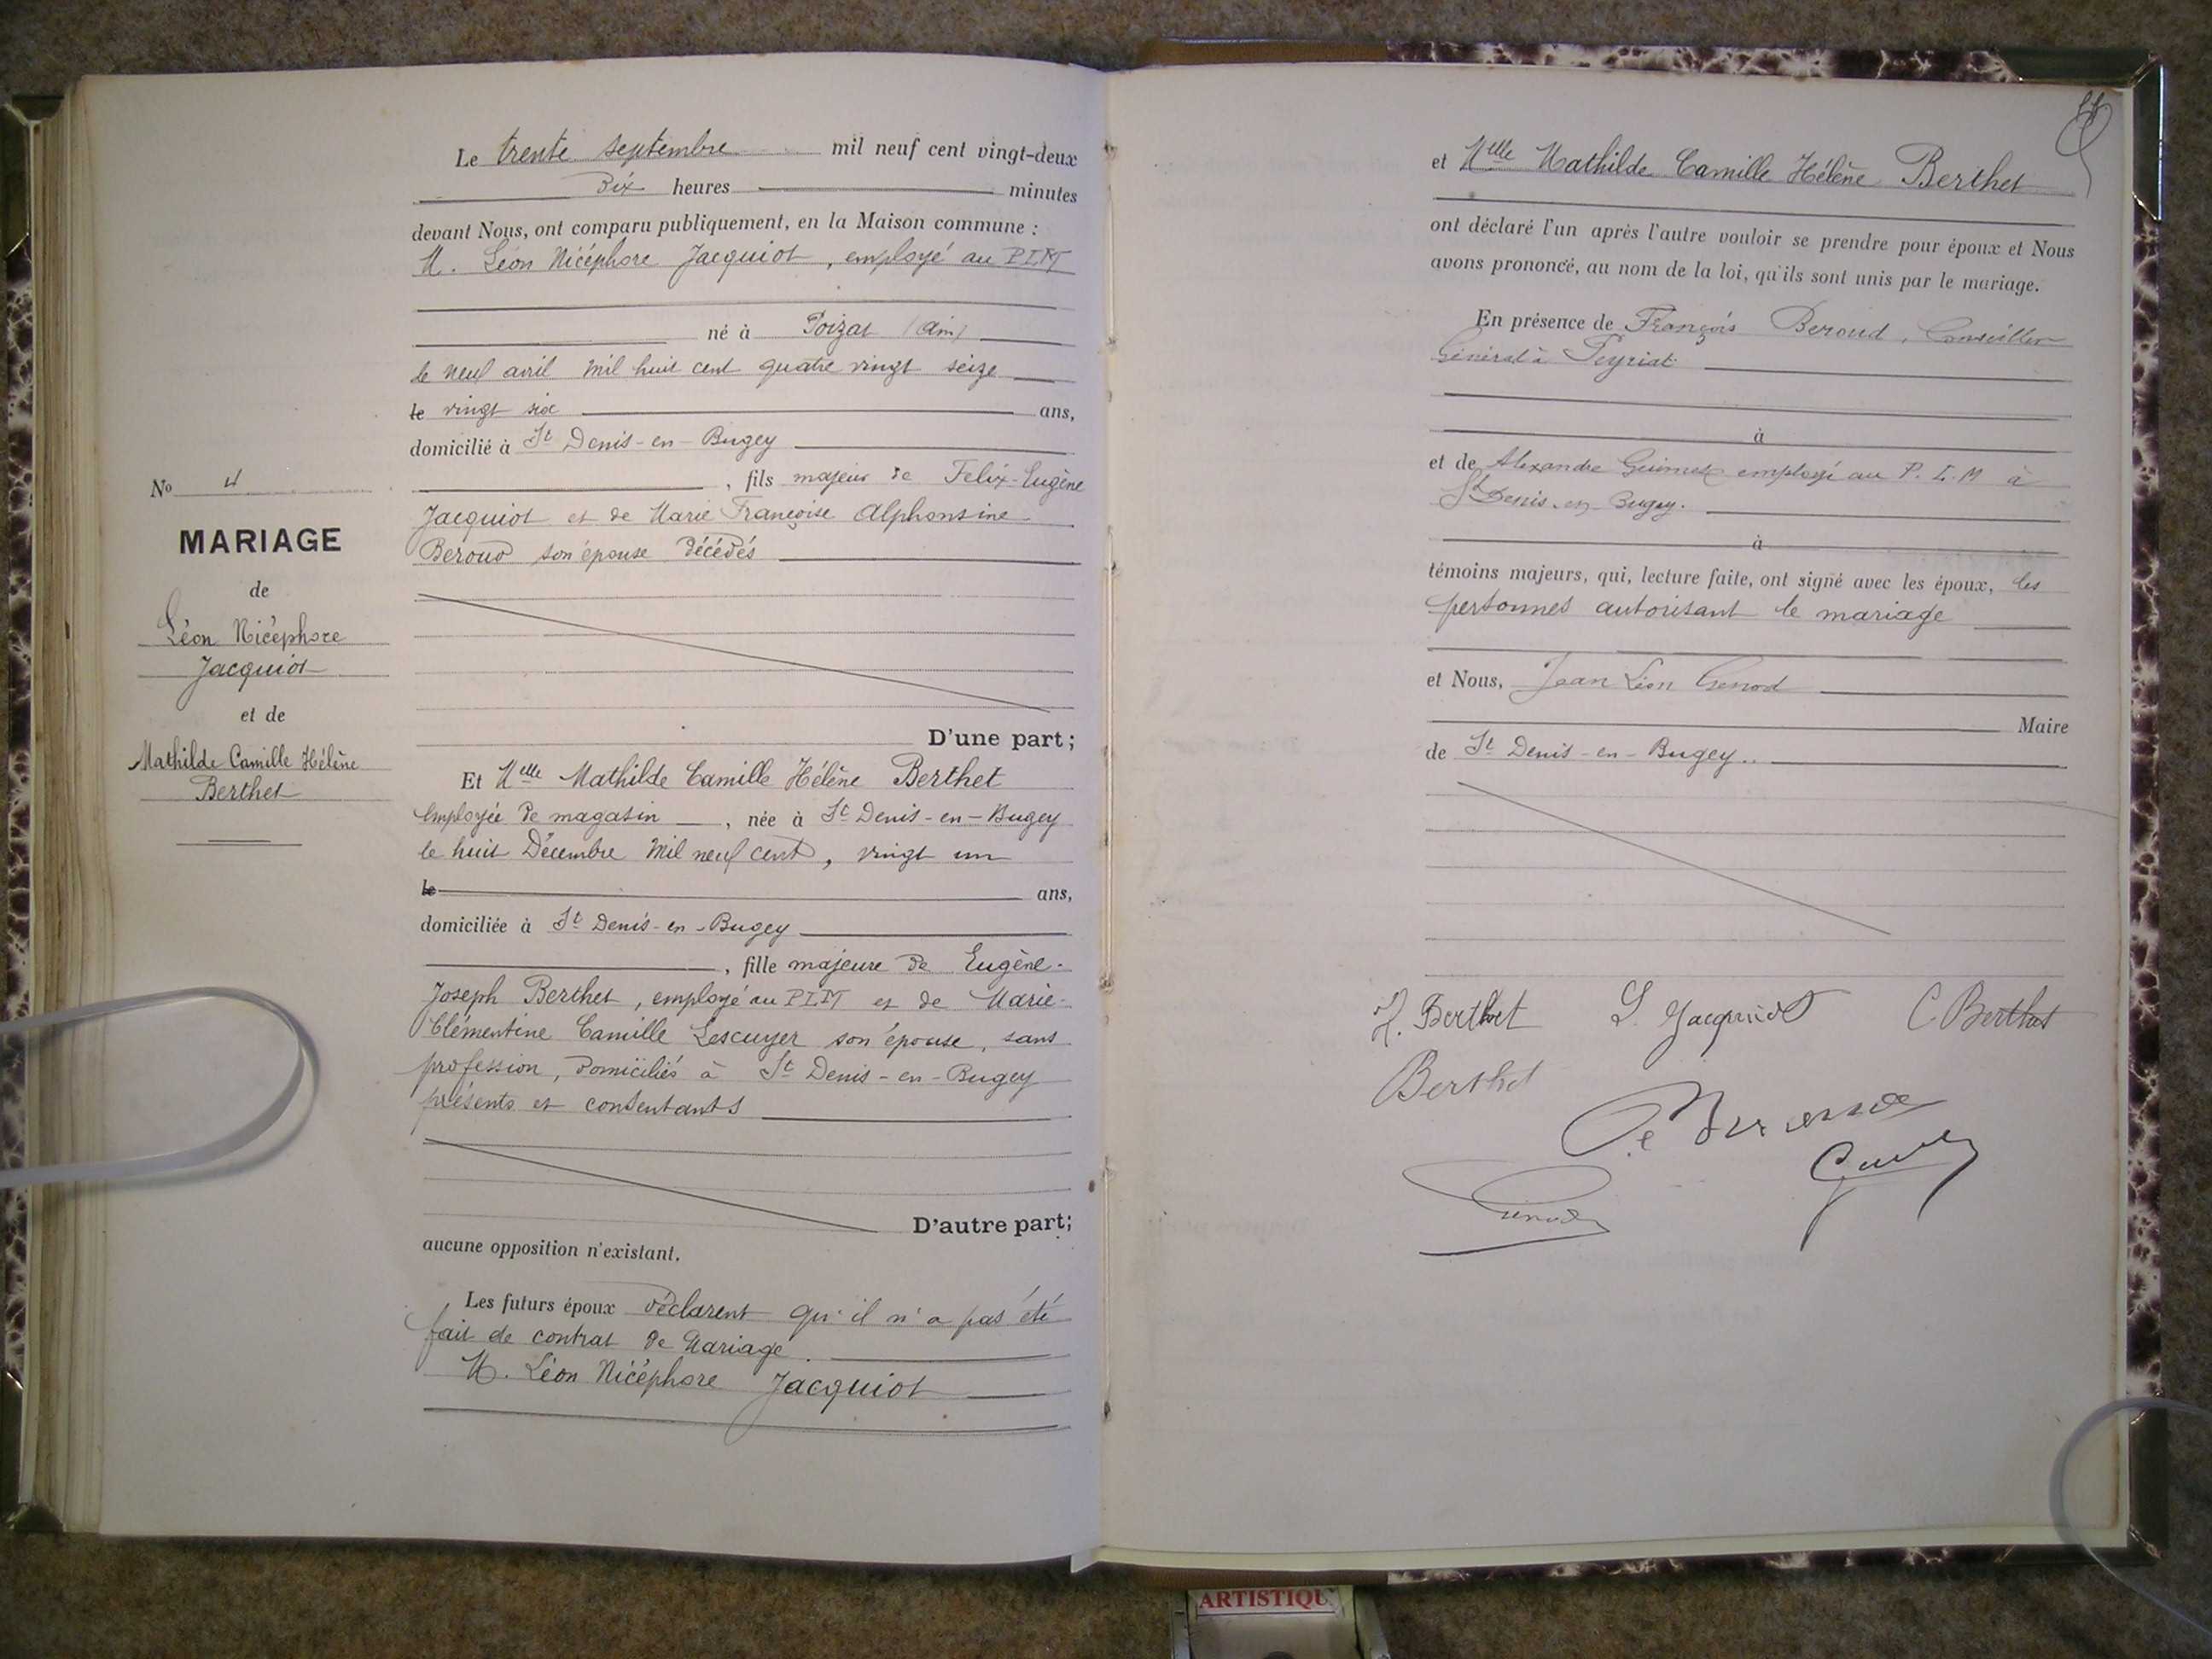 No 4
MARIAGE
de
Léon Nicéphore
Jacquiot
et de
Mathilde Camille Hélène
Berthet
Le trente septembre mil neuf cent vingt-deux
Dix heures minutes
devant Nous, ont comparu publiquement, en la Maison commune :
M. Léon Nicéphore Jacquiot, employé au PLM
né à Poizat (Ain)
le neuf avril mil huit cent quatre vingt seize
le vingt six ans,
domicilié à St Denis-en-Bugey
, fils majeur de Felix-Eugène
Jacquiot et de Marie Françoise Alphonsine
Beroud son épouse décédés
D'une part ;
Et Melle Mathilde Camille Hélène Berthet
employée de magasin, née à St Denis-en-Bugey
le huit Décembre mil neuf cent, vingt un
le ans,
domiciliée à St Denis-en-Bugey
, fille majeure de Eugène-
Joseph Berthet, employé au PLM et de Marie-
Clémentine Camille Lescuyer son épouse, sans
profession, domiciliés à St Denis-en-Bugey
présents et consentants
D'autre part;
aucune opposition n'existant.
Les futurs époux déclarent qu'il n'a pas été
fait de contrat de Mariage.
M. Léon Nicéphore Jacquiot
et Melle Mathilde Camille Hélène Berthet
ont déclaré l'un après l'autre vouloir se prendre pour époux et Nous
avons prononcé, au nom de la loi, qu'ils sont unis par le mariage.
En présence de François Beroud, Conseiller
Général à Peyriat
à
et de Alexandre employé au P.L.M à
St Denis-en-Bugey.
à
témoins majeurs, qui, lecture faite, ont signé avec les époux, les
personnes autorisant le mariage
et Nous, Jean Léon Genod
Maire
de St Denis-en-Bugey..
H. Berthet L. Jacquiot C Berthet
Berthet
ARTISTIQU